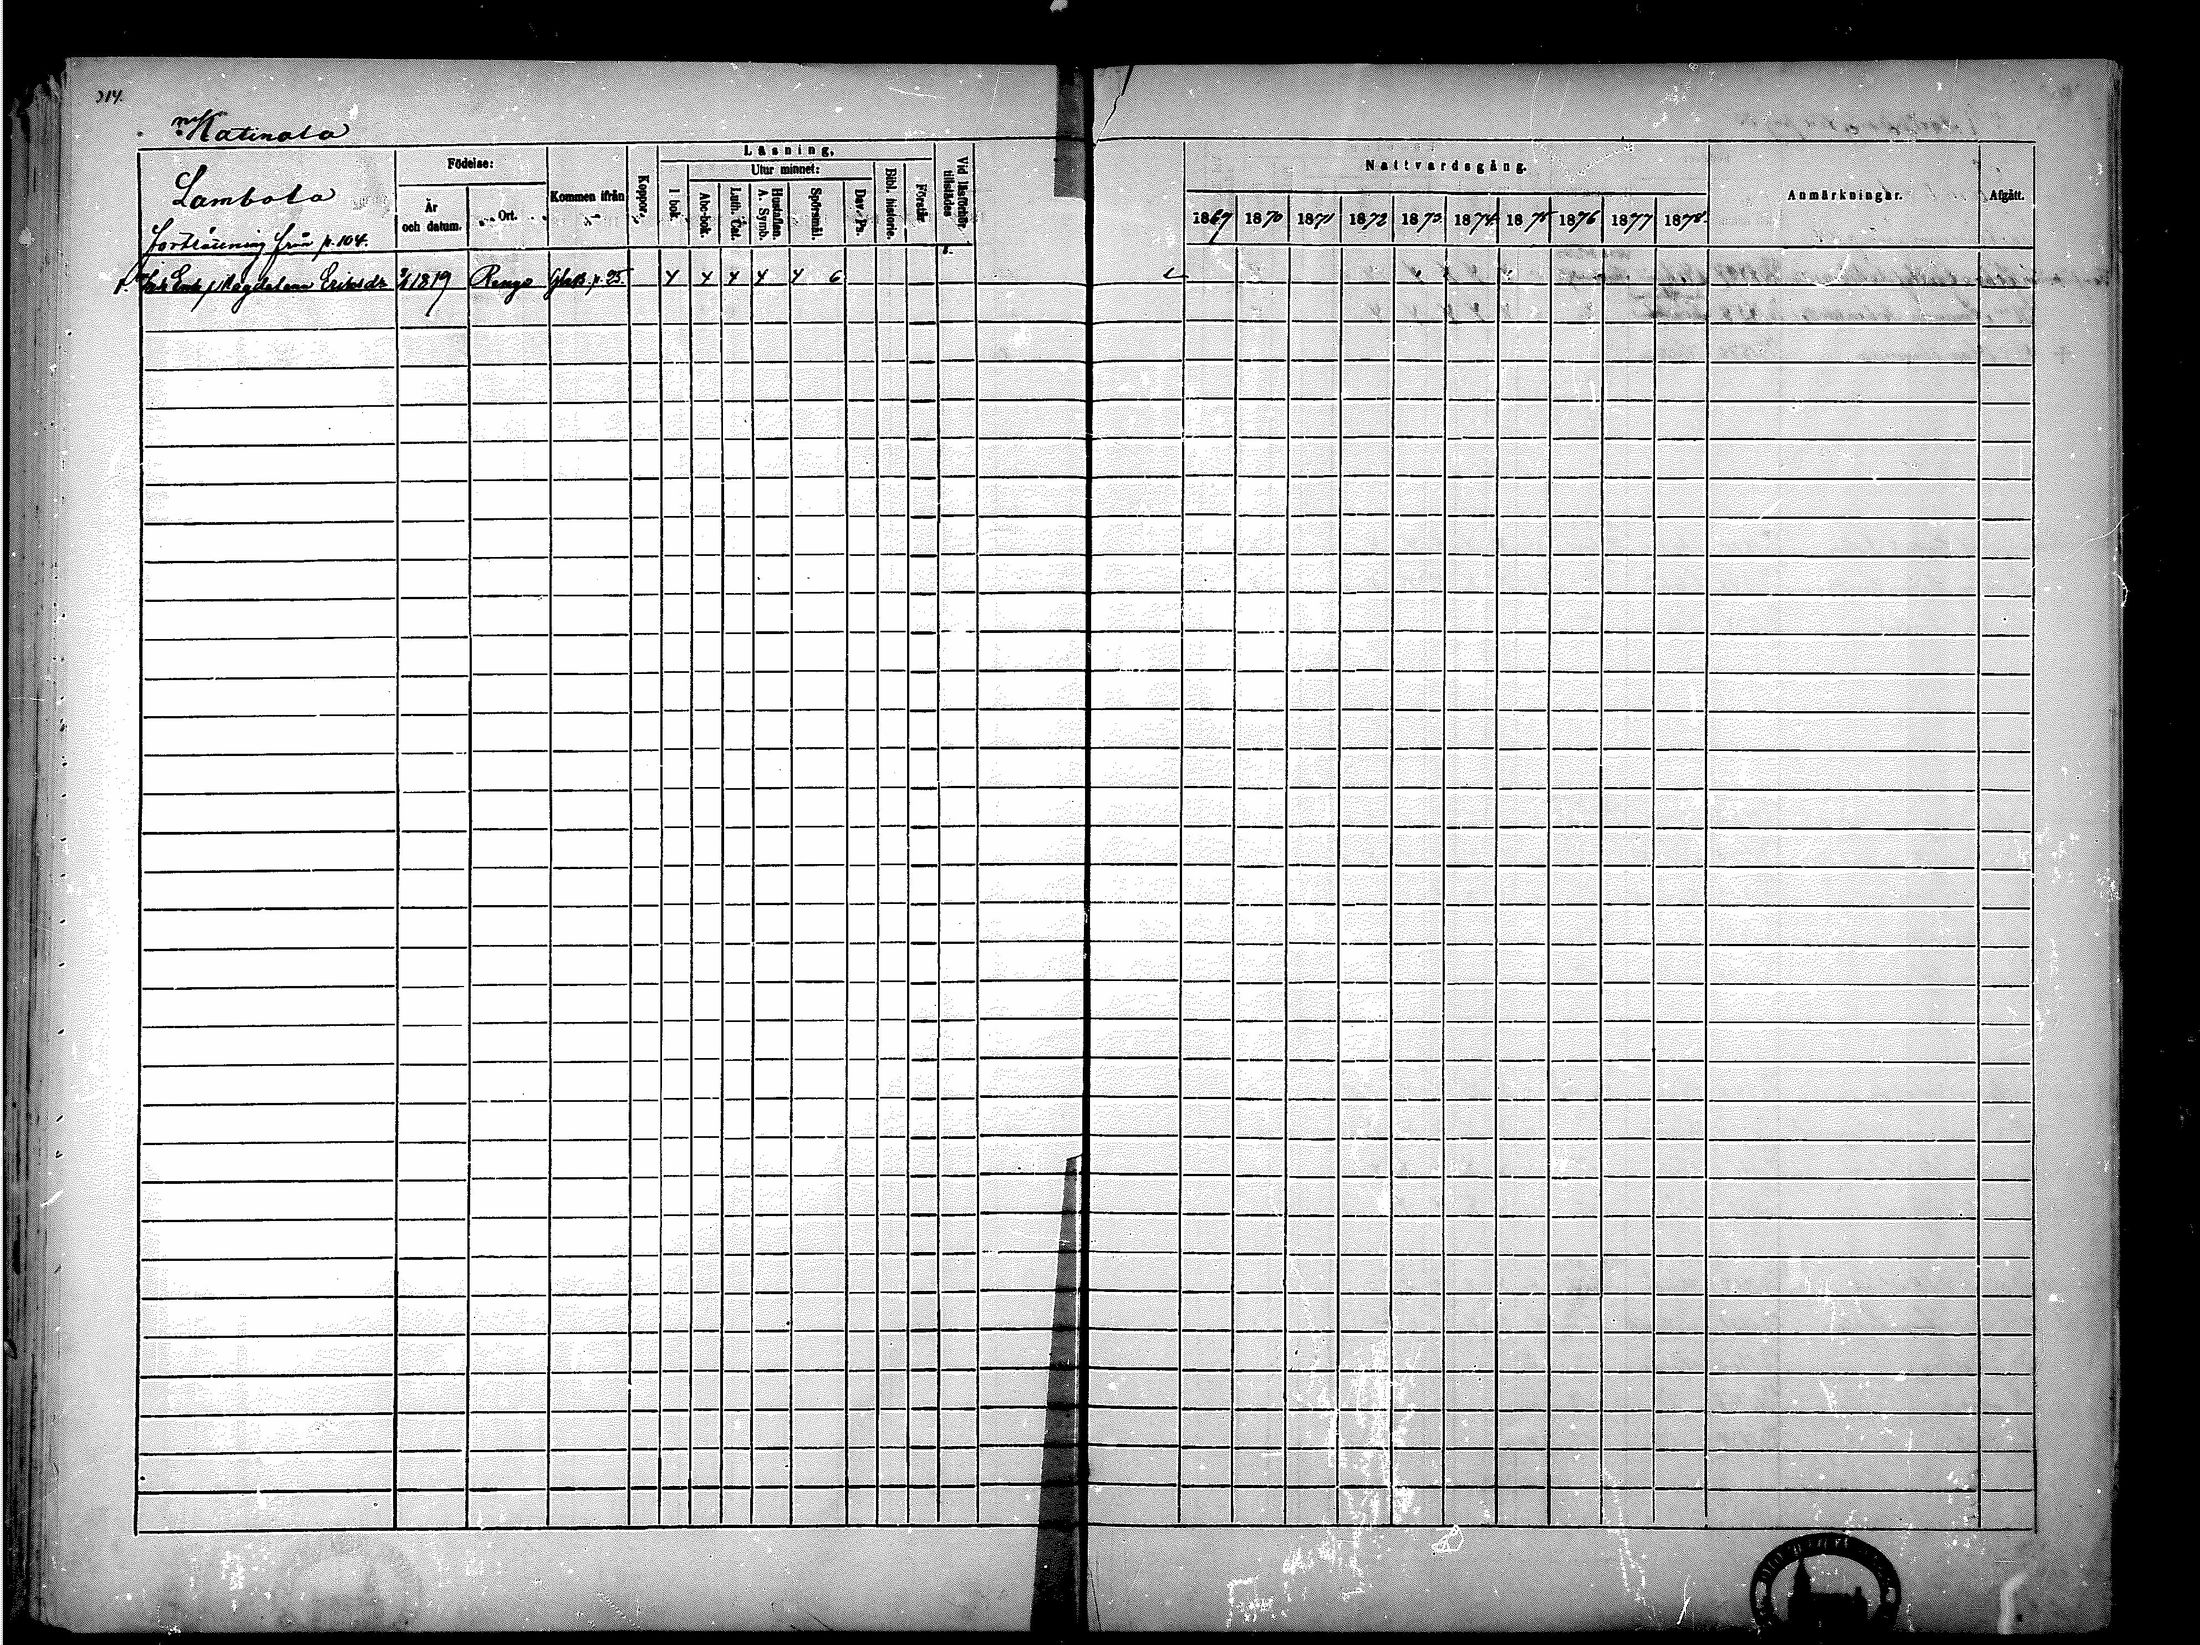 314.
Katinala
Lambola
fortsättning från p. 104.
Födelse:
År och datum.
Ort.
Kommen ifrån
Koppor.
Läsning,
I bok.
Utur minnet:
Abc-bok.
Luth. Cat.
Hustaflan. A. Symb.
Spörsmål.
Dav. Ps.
Bibl. historie.
Förstår
Vid läsförhör.
Nattvardsgång.
1869 1870 1871 1872 1873 1874 1875 1876 1877 1878.
Anmärkningar.
Afgått.
Enk. Magdalena Eriksdr 1819 Rengo p. 25 6